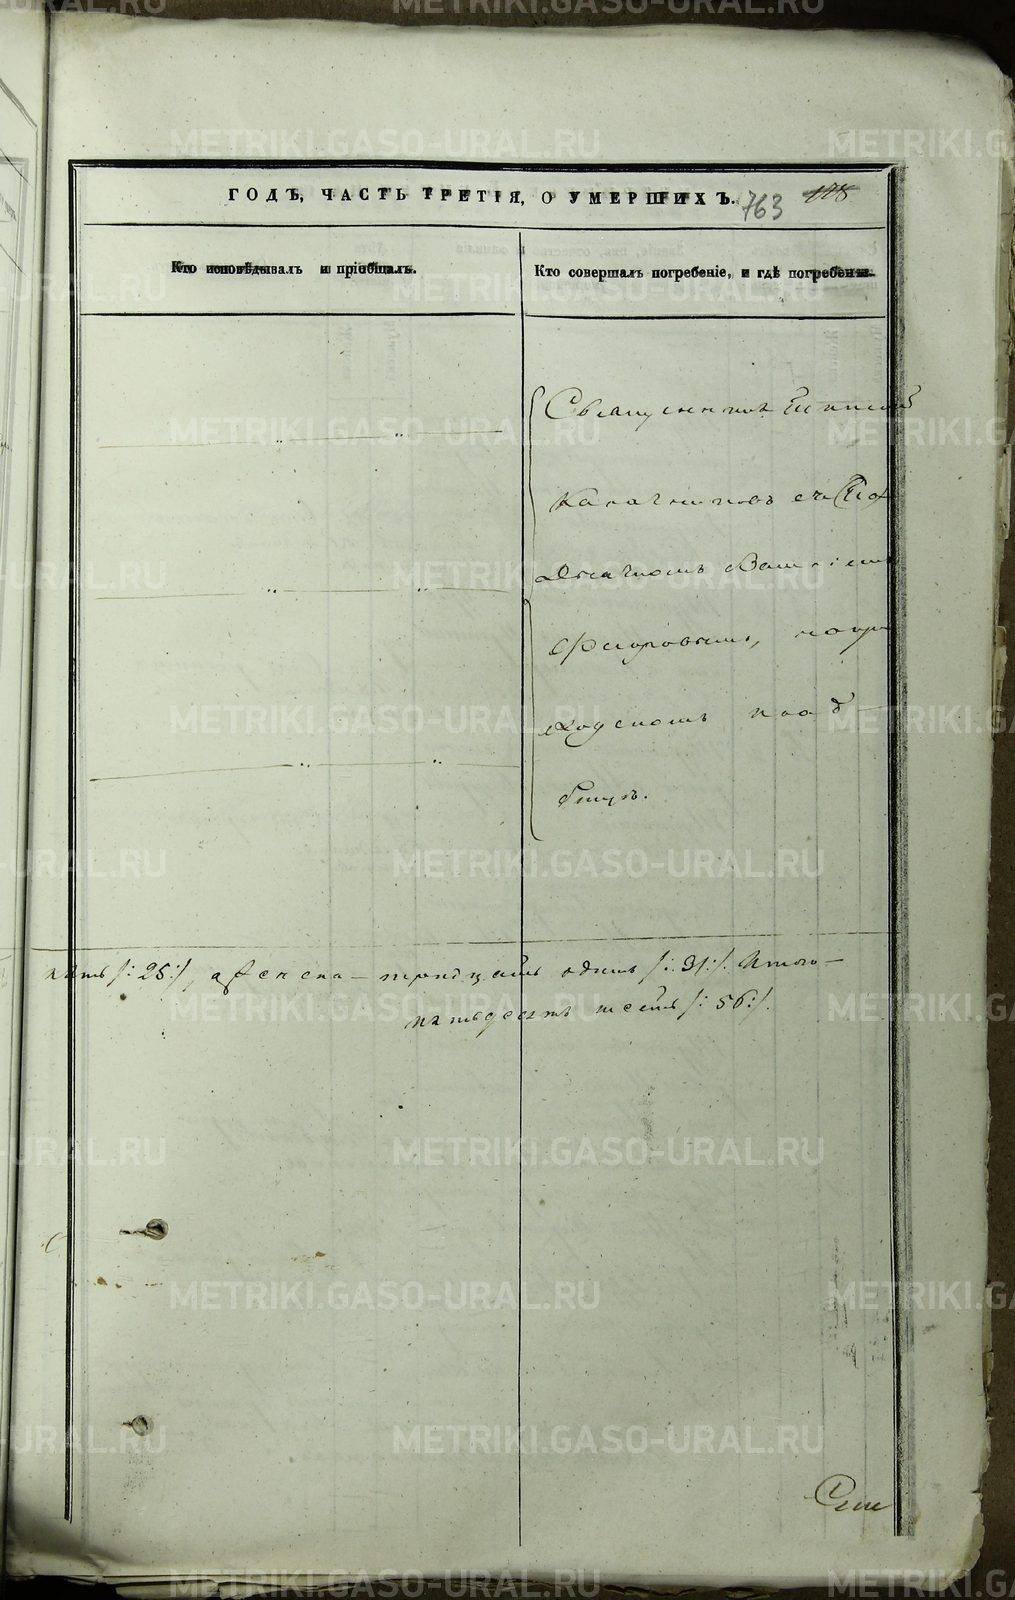 ГОДЪ, ЧАСТЬ ТРЕТІЯ, О УМЕРШИХЪ.
763 128
Кто исповѣдывалъ и пріобщалъ.
Кто совершалъ погребеніе, и гдѣ погребены.
Священникъ
Калачниковъ съ
Дьячкомъ
Флоровымъ, на при
ходскомъ клад
бищѣ.
пять /: 25 :/, а женска – тридцать одинъ /: 31 :/. Итого –
пятьдесятъ шесть /: 56 :/.
METRIKI.GASO-URAL.RU